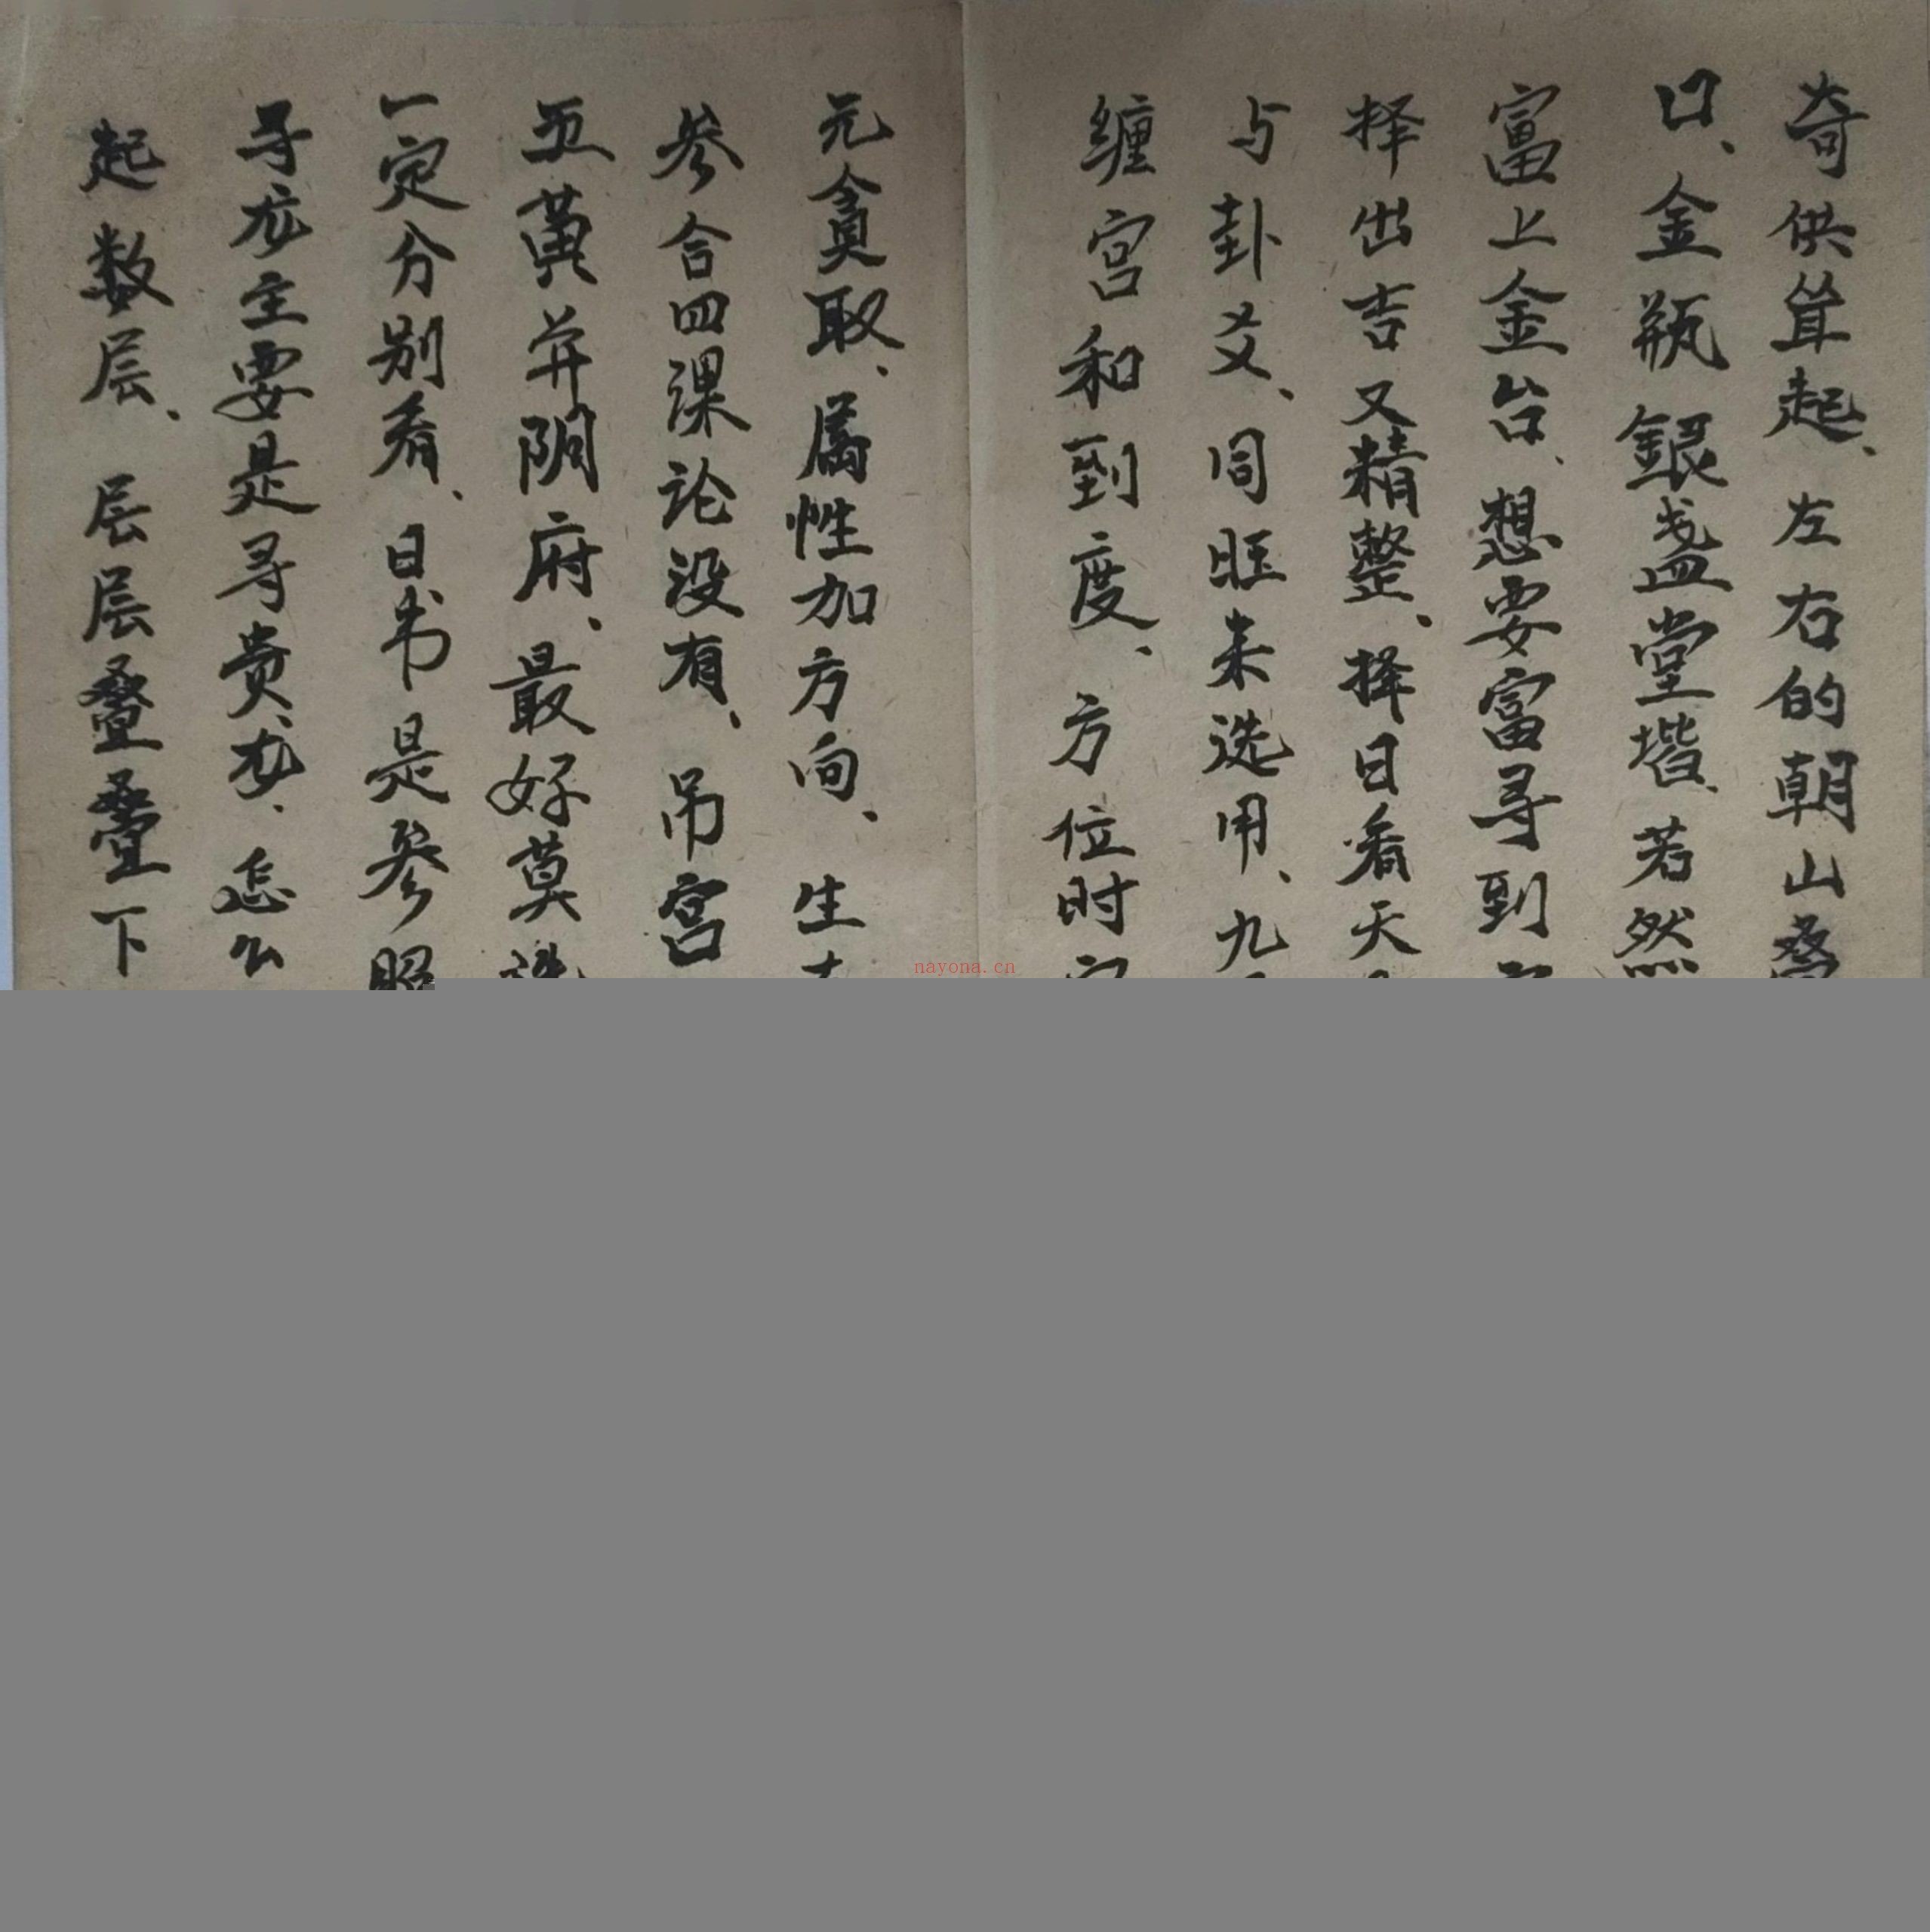 奇供耸起、左右的朝山叠
口、金瓶銀盏堂堦、若然
富上金台、想要富寻到
择出吉又精整、择日看天
与卦爻、同旺来选用、九
缠宫和到度、方位时
元贪取、属性加方向、生
参合四课论没有、吊宫
五黄并阴府、最好莫选
一定分别看、日书是参照
寻龙主要是寻贵龙、怎么
起数层、层层叠叠下
nayona.cn